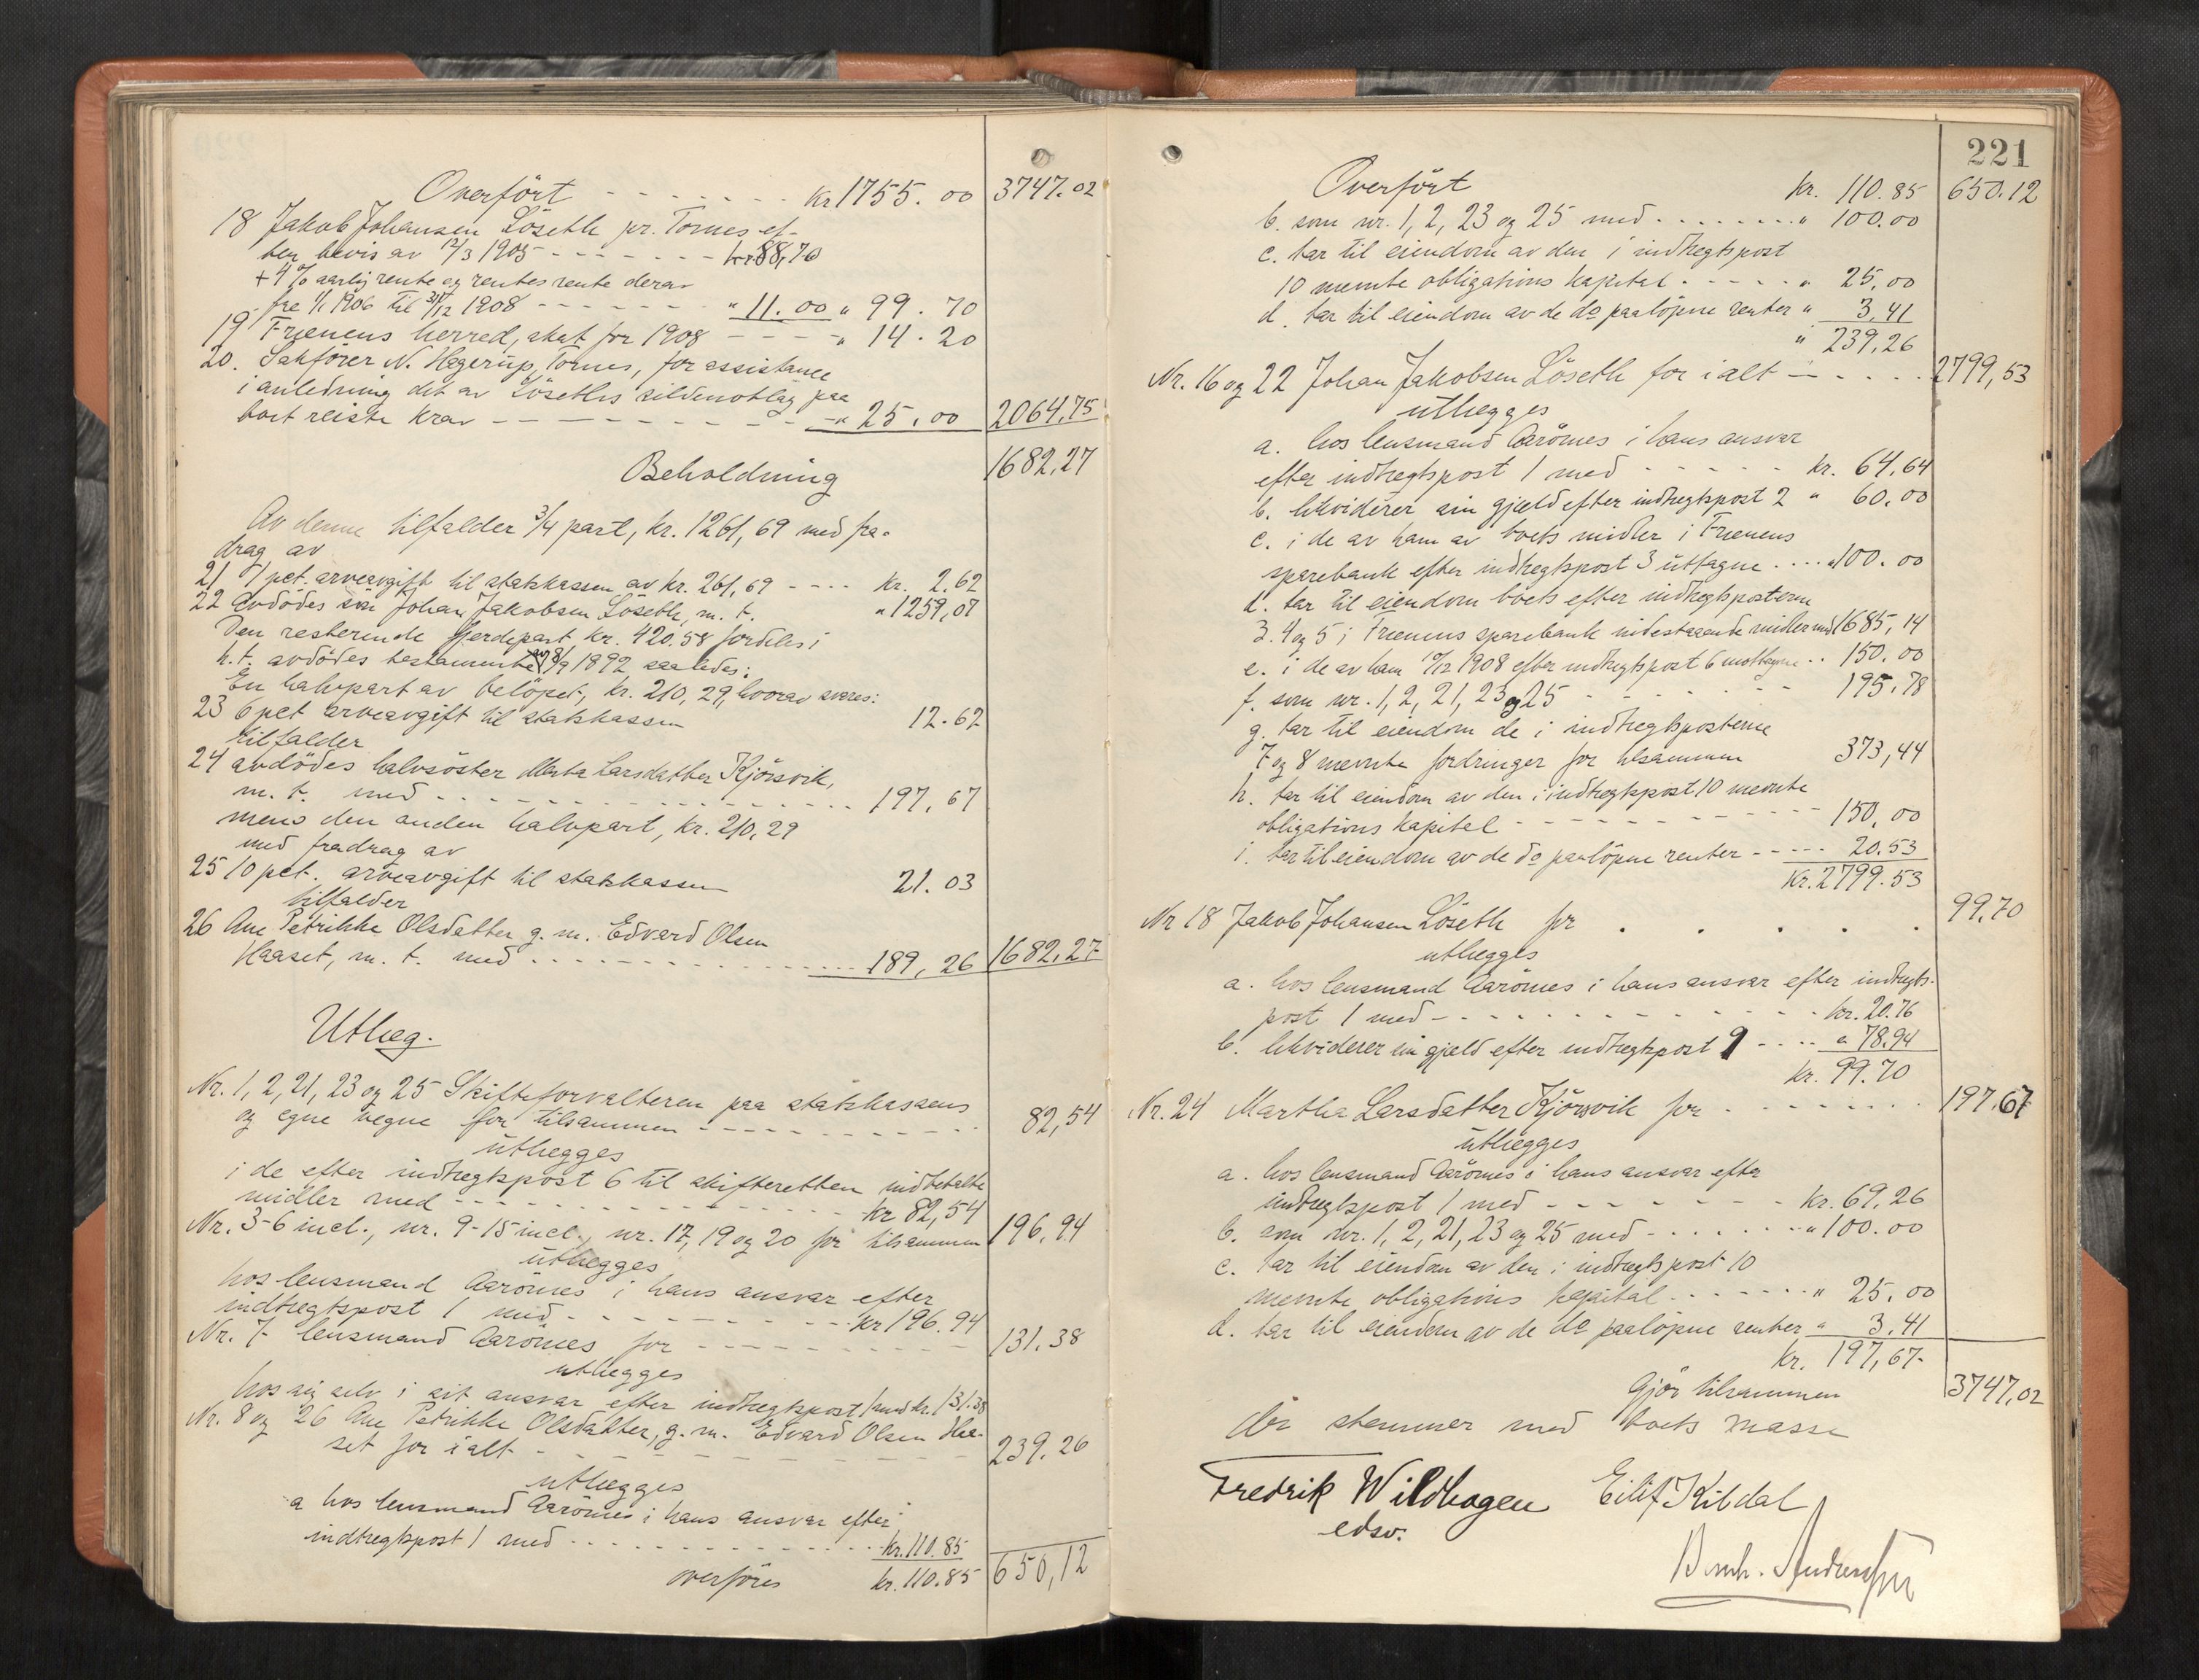 Overført - - - - - - kr 1755.00 3747.02
18 Jakob Johansen Löseth pr. Tornes ef-
ter bevis av 12/3 1905 - - - - - - - kr. 88,70
+ 4% aarlig rente og rentes rente derav
fra 1/1 1906 til 31/12 1908 - - - - - - " 11.00 " 99.70
19 Frænens herred, skat for 1908 - - - - " 14.20
20. Sakfører N. Hagerup, Tornes, for assistance
i anledning det av Løseths sildenotlag paa
boet reiste krav - - - - - - - - - " 25.00 2064,75
Beholdning 1682,27
Av denne tilfalder 3/4 part, kr. 1261,69 med fra-
drag av
21 1 pct. arveavgift til statskassen av kr. 261,69 - - - - kr. 2.62
22 avdødes søn Johan Jakobsen Löseth, m. t. " 1259,07
Den resterende fjerdepart kr. 420.58 fordeles i
h.t. avdødes testamente av 8/9 1892 saaledes:
En halvpart av beløpet, kr. 210,29, hvorav svares:
23 6 pct arveavgift til statskassen 12.62
tilfalder
24 avdødes halvsøster Marta Larsdatter Kjörsvik,
m. t. med - - - - - - - - - - - 197,67
mens den anden halvpart, kr. 210,29
med fradrag av
25 10 pct. arveavgift til statskassen 21.03
tilfalder
26 Ane Petrikke Olsdatter g. m. Edvard Olsen
Haaset, m. t. med - - - - - - - - - - 189,26 1682,27
Utlæg.
Nr. 1, 2, 21, 23 og 25 Skifteforvalteren paa statskassens
og egne vegne for tilsammen - - - - - - - - 82,54
utlægges
i de efter indtægtspost 6 til skifteretten indbetalte
midler med - - - - - - - - - - kr 82,54
Nr. 3-6 incl., nr. 9-15 incl., nr. 17, 19 og 20 for tilsammen 196.94
utlægges
hos lensmand Aarönes i hans ansvar efter
indtægtspost 1 med - - - - - - - - kr 196.94
Nr. 7 lensmand Aarönes for - - - - - - - - 131.38
utlægges
hos sig selv i sit ansvar efter indtægtspost 1 med kr. 131.38
Nr. 8 og 26 Ane Petrikke Olsdatter, g. m. Edvard Olsen Haa-
set for ialt - - - - - - - - - - - 239.26
utlægges
a hos lensmand Aarönes i hans ansvar efter
indtægtspost 1 med - - - - - - - - - - kr. 110.85
overføres kr. 110.85 650,12
221
Overført kr. 110.85 650.12
b. som nr. 1, 2, 23 og 25 med - - - - - - - - " 100.00
c. tar til eiendom av den i indtægtspost
10 nevnte obligations kapital - - - - - " 25,00
d. tar til eiendom av de do paaløpne renter " 3,41
" 239,26
Nr. 16 og 22 Johan Jakobsen Löseth for ialt - - - - - 2799,53
utlægges
a. hos lensmand Aarönes i hans ansvar
efter indtægtspost 1 med - - - - - - kr. 64,64
b. likviderer sin gjæld efter indtægtspost 2 " 60.00
c. i de av ham av boets midler i Frænens
sparebank efter indtægtspost 3 uttagne - - - - " 100.00
d. tar til eiendom boets efter indtægtsposterne
3. 4 og 5 i Frænens sparebank indestaaende midler med 1685,14
e. i de av ham 10/12 1908 efter indtægtspost 6 mottagne - - 150.00
f. som nr. 1, 2, 21, 23 og 25 - - - - - - 195,78
g. tar til eiendom de i indtægtsposterne
7 og 8 nevnte fordringer for tilsammen 373,44
h. tar til eiendom av den i indtægtspost 10 nevnte
obligations kapital - - - - - - - - - - 150,00
i. tar til eiendom av de do paaløpne renter - - - - - 20.53
Kr. 2799.53
Nr 18 Jakob Johansen Löseth for . . . . . 99.70
utlægges
a. hos lensmand Aarönes i hans ansvar efter indtægts-
post 1 med - - - - - - - - - - - kr. 20.76
b. likviderer sin gjæld efter indtægtspost 9 - - - - " 78.94
kr. 99.70
Nr. 24 Martha Larsdatter Kjörsvik for - - - - - - - 197.67
utlægges
a. hos lensmand Aarönes i hans ansvar efter
indtægtspost 1 med - - - - - - - kr. 69,26
b. som nr. 1, 2, 21, 23 og 25 med - - - - - - " 100.00
c. tar til eiendom av den i indtægtspost 10
nevnte obligations kapital - - - - - - - " 25.00
d. tar til eiendom av de do paaløpne renter " 3.41
kr. 197,67
Gjør tilsammen 3747,02
stemmer med boets masse
Fredrik Wildhagen Eilif Kildal
edsv.
Bernh.